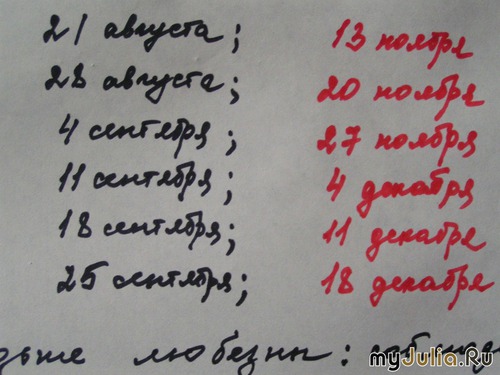 21 августа; 13 ноября
28 августа; 20 ноября
4 сентября; 27 ноября
11 сентября; 4 декабря
18 сентября; 11 декабря
25 сентября; 18 декабря
любезны:
myJulia.Ru